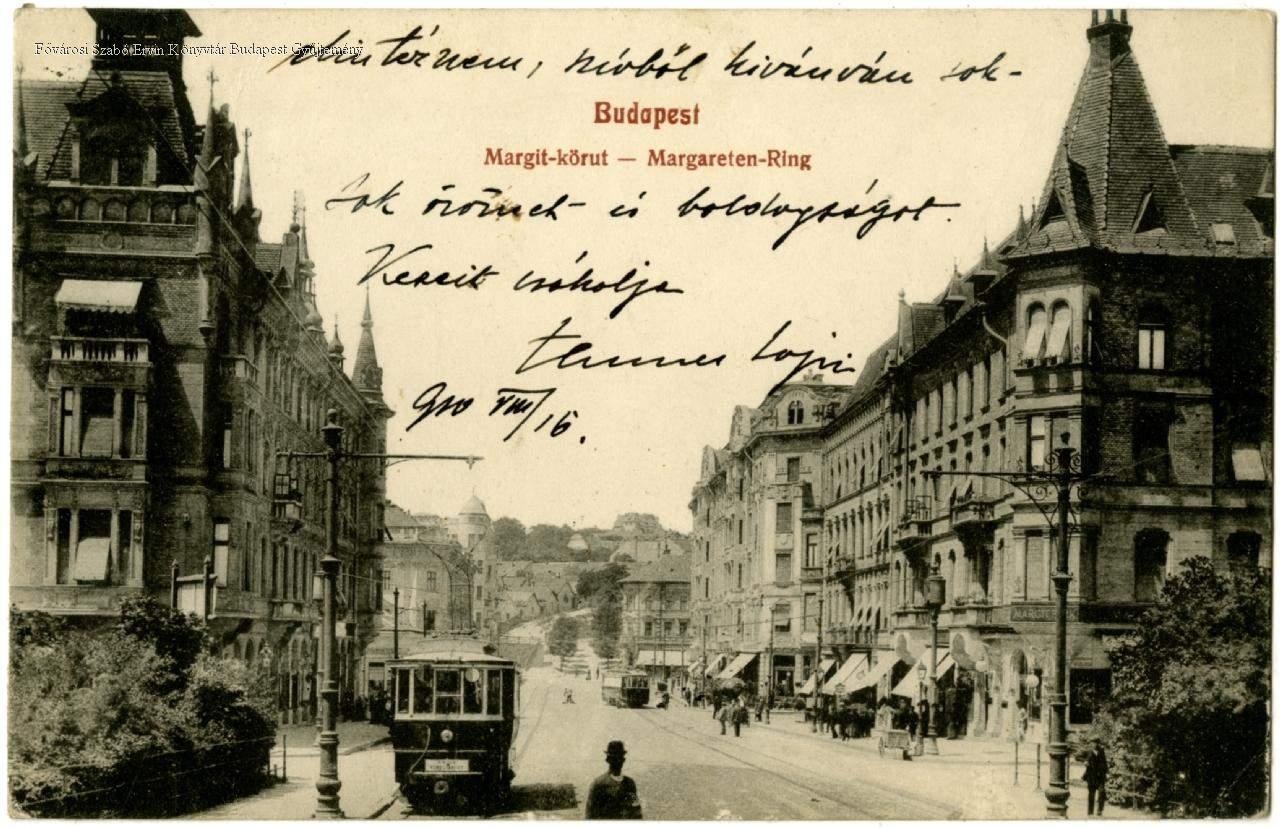 Fővárosi Szabó Ervin Könyvtár Budapest Gyűjtemény
szívből kivánván sok-
Budapest
Margit-körut — Margareten-Ring
sok örömet és boldogságot.
Kezeit csókolja
Lajri
910 VIII/16.